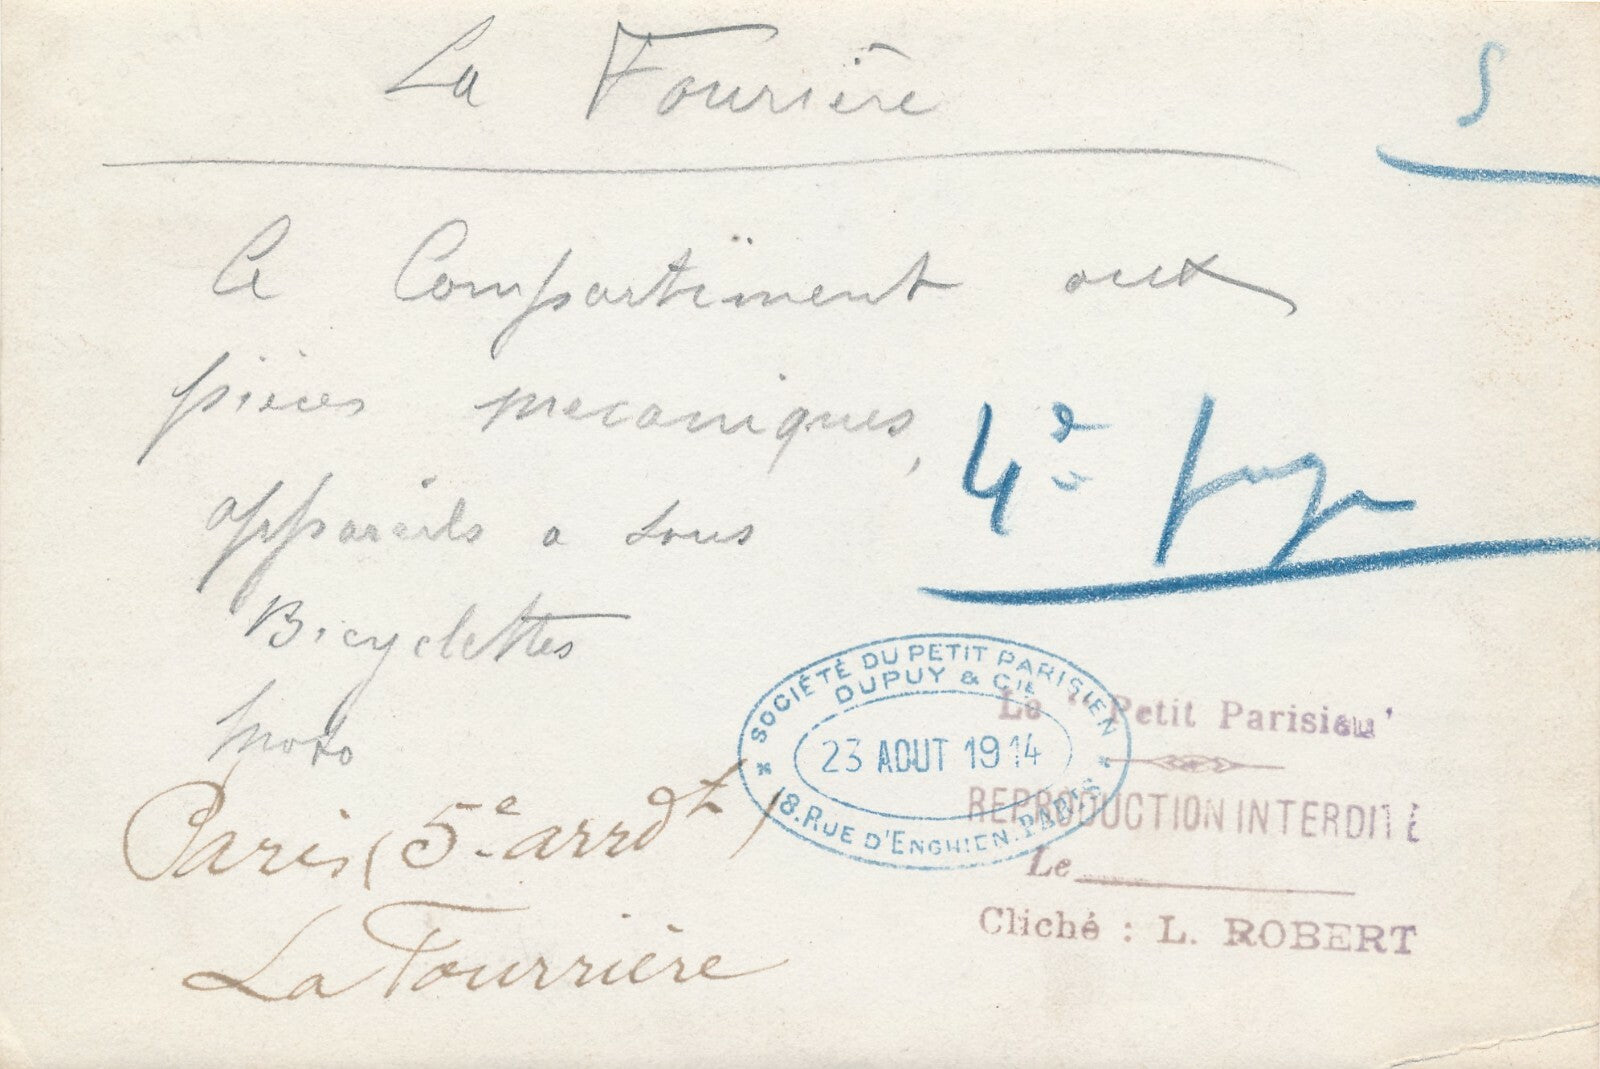 La Fourière
S
Le Compartiment aux
pièces mecaniques,
appareils a sous
Bicyclettes
moto
4e page
Paris (5e arrdt)
La Fourrière
SOCIÉTÉ DU PETIT PARISIEN
DUPUY & CIE
23 AOUT 1914
18. RUE D'ENGHIEN. PARIS
Le "Petit Parisien"
REPRODUCTION INTERDITE
Le
Cliché : L. ROBERT